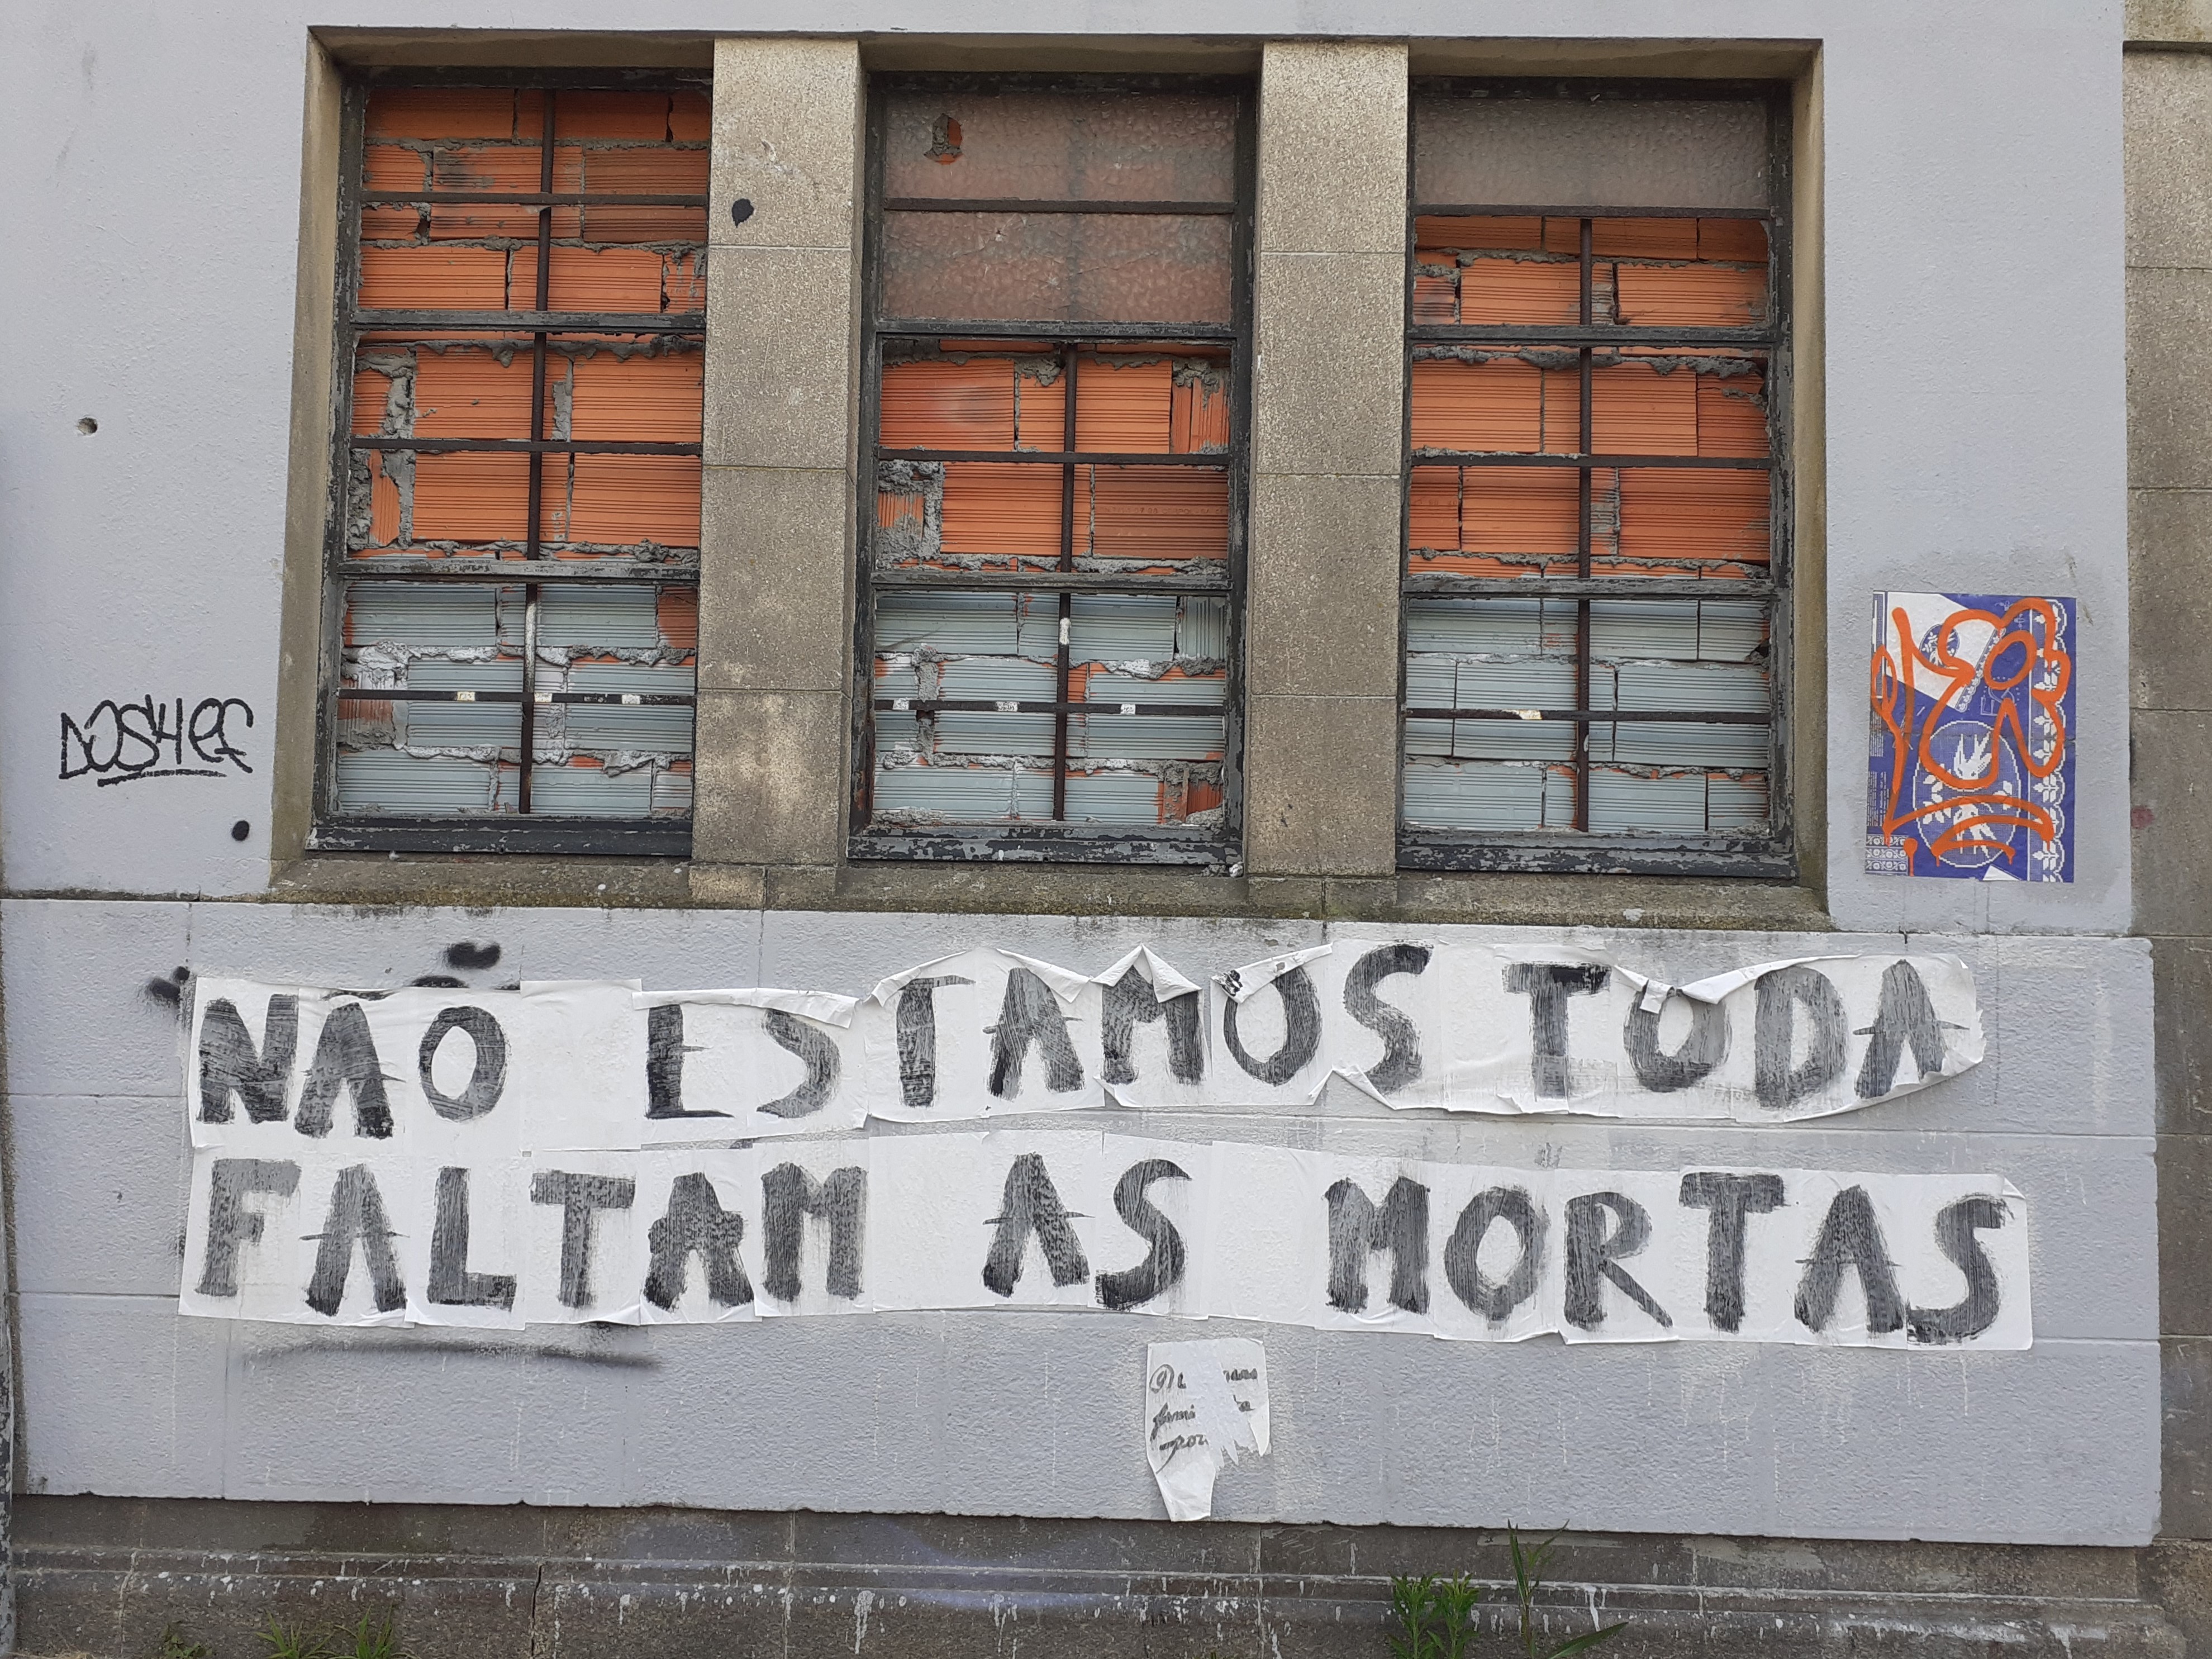 DOSHER
NÃO ESTAMOS TODA
FALTAM AS MORTAS